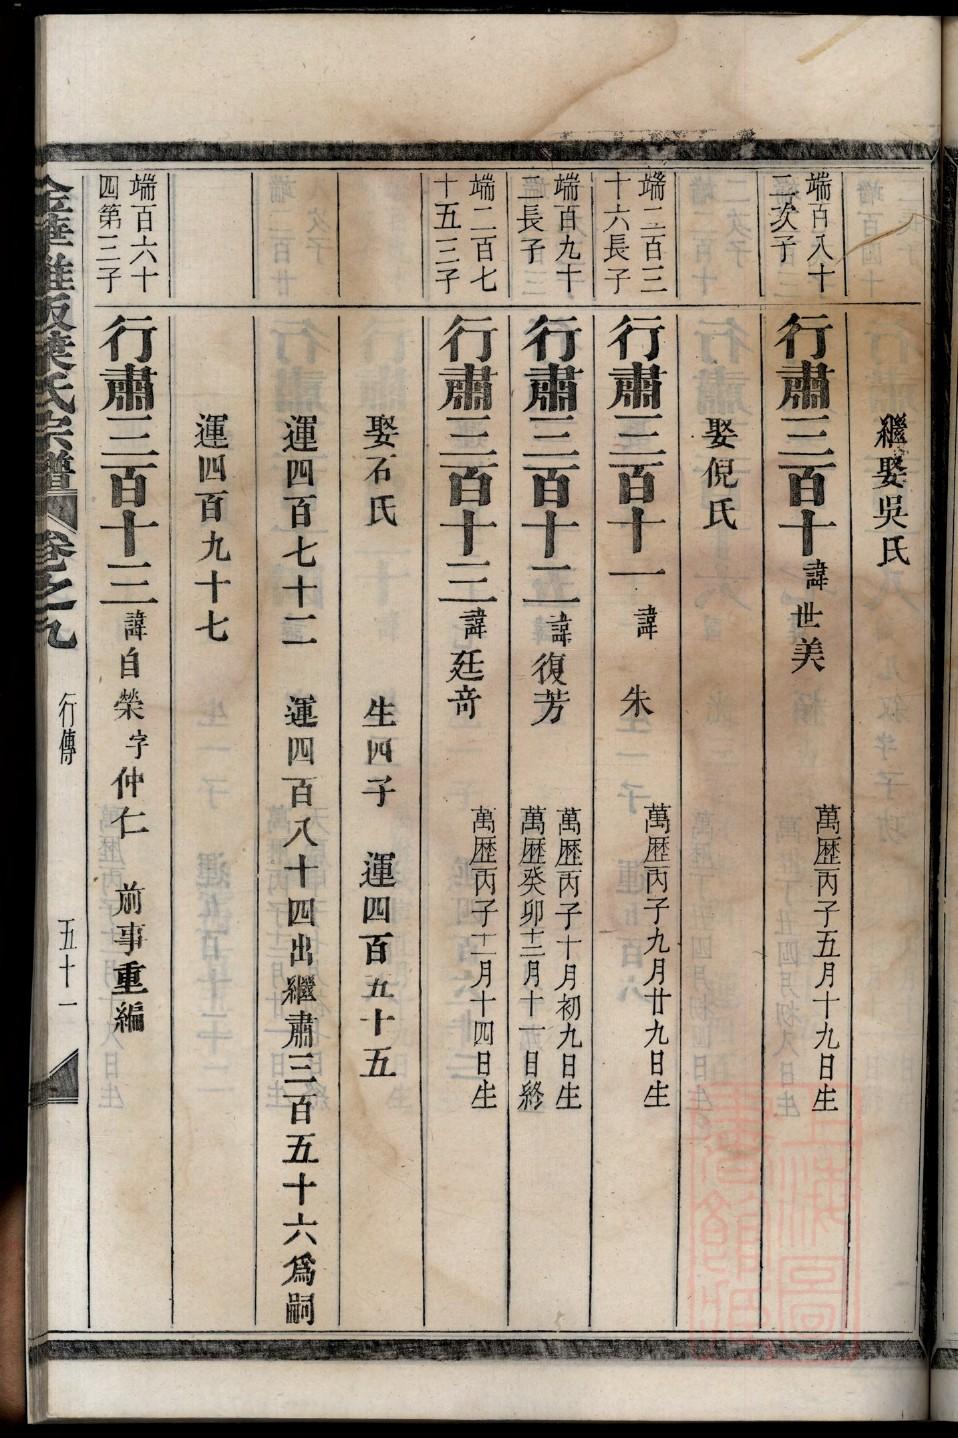 繼娶吳氏
端百八十
二次子
行肅三百十諱世美
萬歷丙子五月十九日生
娶倪氏
端二百三
十六長子
行肅三百十一諱 朱
萬歷丙子九月廿九日生
端百九十
三長子
行肅三百十二諱復芳
萬歷丙子十月初九日生
萬歷癸卯十二月十一日終
端二百七
十五三子
行肅三百十三諱廷奇
萬歷丙子十一月十四日生
娶石氏 生四子 運四百五十五
運四百七十二 運四百八十四出繼肅三百五十六爲嗣
運四百九十七
端百六十
四第三子
行肅三百十三諱自榮字仲仁 前事重編
葉氏宗譜 卷之九 行傳 五十一